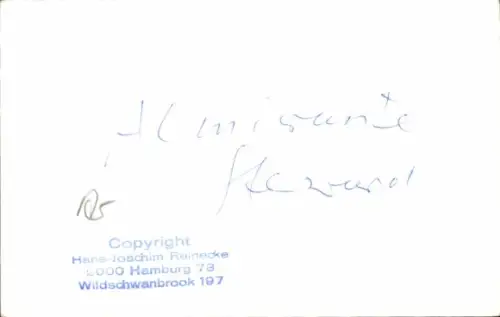 Almirante
Copyright
Hans-Joachim Reinecke
2000 Hamburg 73
Wildschwanbrook 197